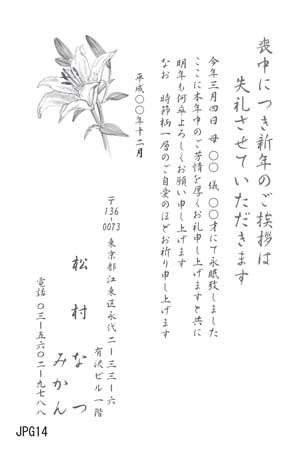 喪中につき新年のご挨拶は
失礼させていただきます
今年三月四日 母 〇〇 儀 〇〇才にて永眠致しました
ここに本年中のご芳情を厚くお礼申し上げますと共に
明年も何卒よろしくお願い申し上げます
なお 時節柄一層のご自愛のほどお祈り申し上げます
平成〇〇年十二月
〒136-0073
東京都江東区永代二ー三三ー六
有沢ビル一階
松村 なつ
みかん
電話 〇三ー五六〇二ー九七八八
JPG14